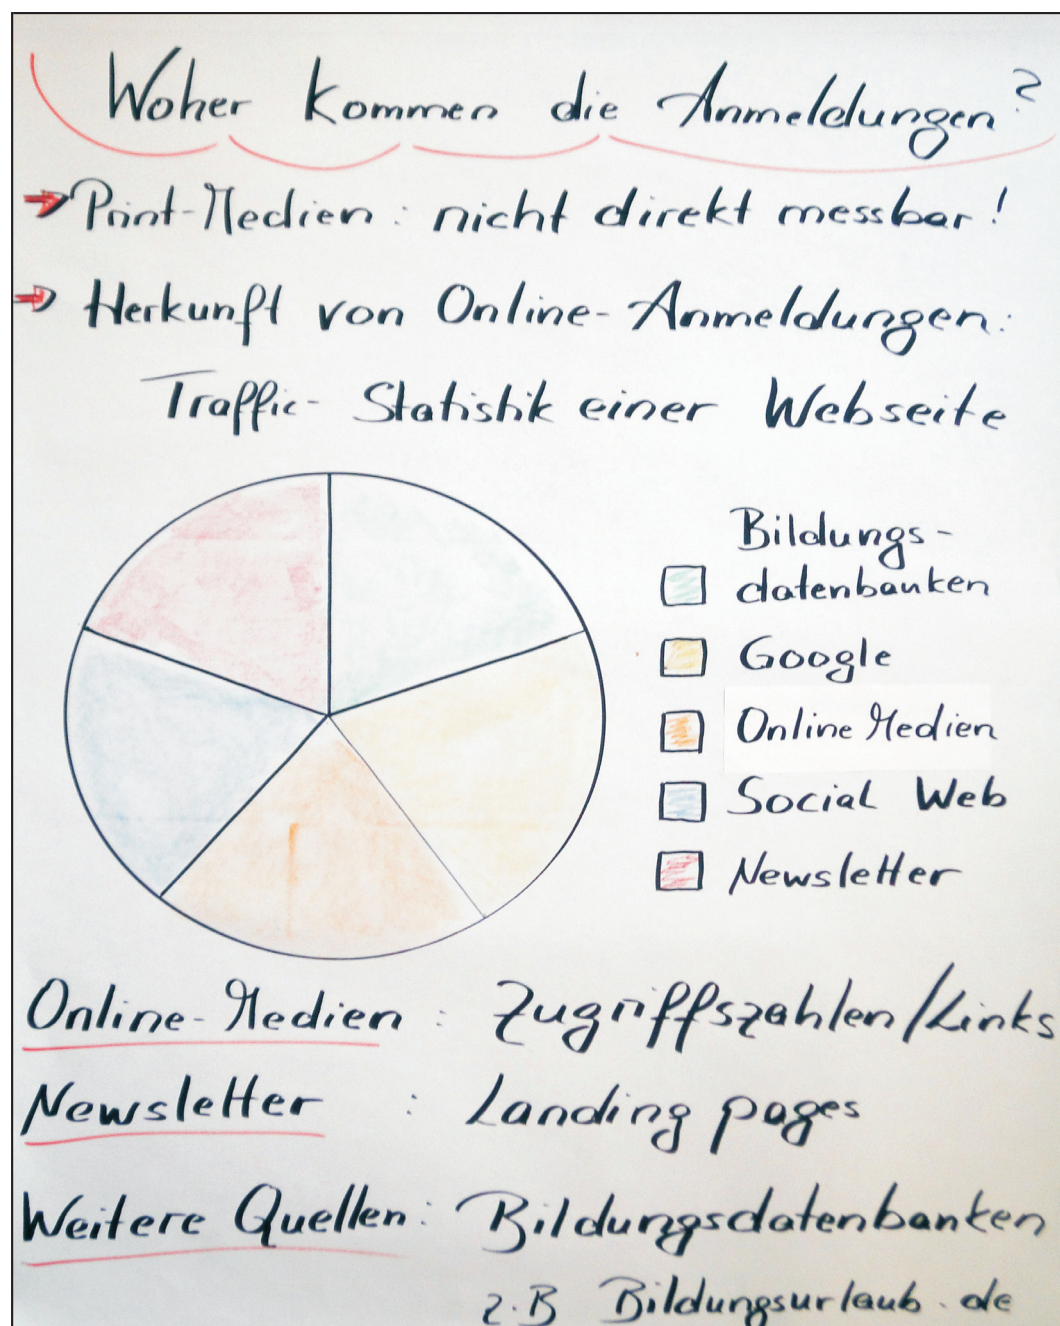 Woher kommen die Anmeldungen?
Print-Medien: nicht direkt messbar!
Herkunft von Online-Anmeldungen:
Traffic-Statistik einer Webseite
Bildungs-
datenbanken
Google
Online Medien
Social Web
Newsletter
Online-Medien: Zugriffszahlen/Links
Newsletter : Landing pages
Weitere Quellen: Bildungsdatenbanken
z.B Bildungsurlaub.de